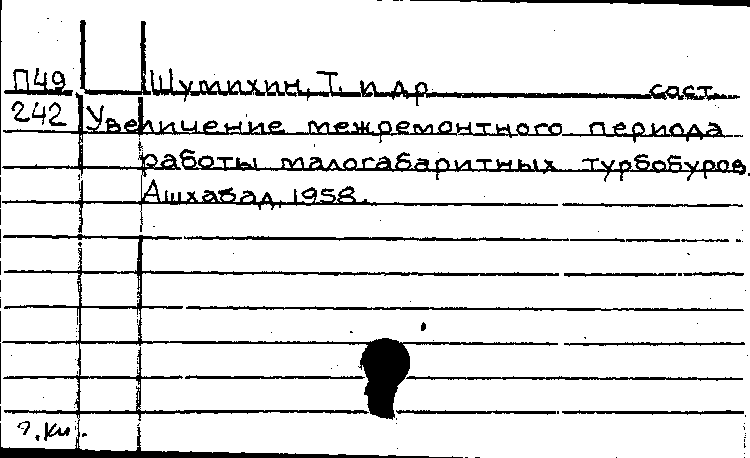 П49 Шумихин, Т. и др. сост.
242 Увеличение межремонтного периода
работы малогабаритных турбобуров.
Ашхабад, 1958.